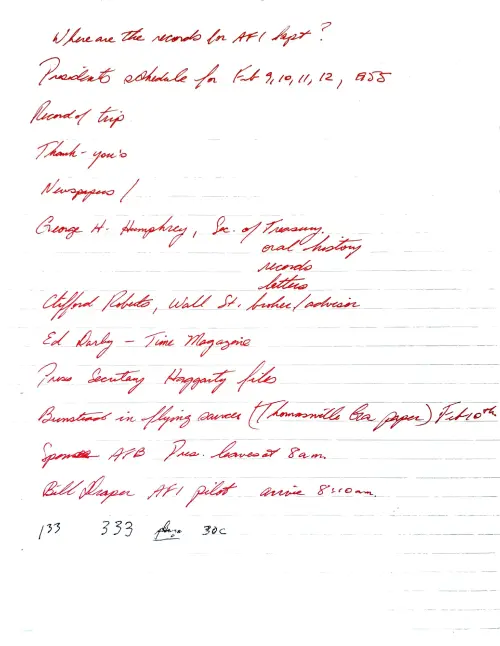 Where are the records for AF1 kept?
Presidents schedule for Feb 9, 10, 11, 12, 1955
Record of trip
Thank-you's
Newspapers /
George H. Humphrey, Sec. of Treasury,
oral history
records
letters
Clifford Roberts, Wall St. broker/advisor
Ed Darby – Time Magazine
Press Secretary Haggarty files
in flying saucer (Thomasville Ga paper) Feb 10th
AFB Pres. leaves at 8 a.m.
Bill Draper AF1 pilot arrive 8:10 a.m.
133 333 30c